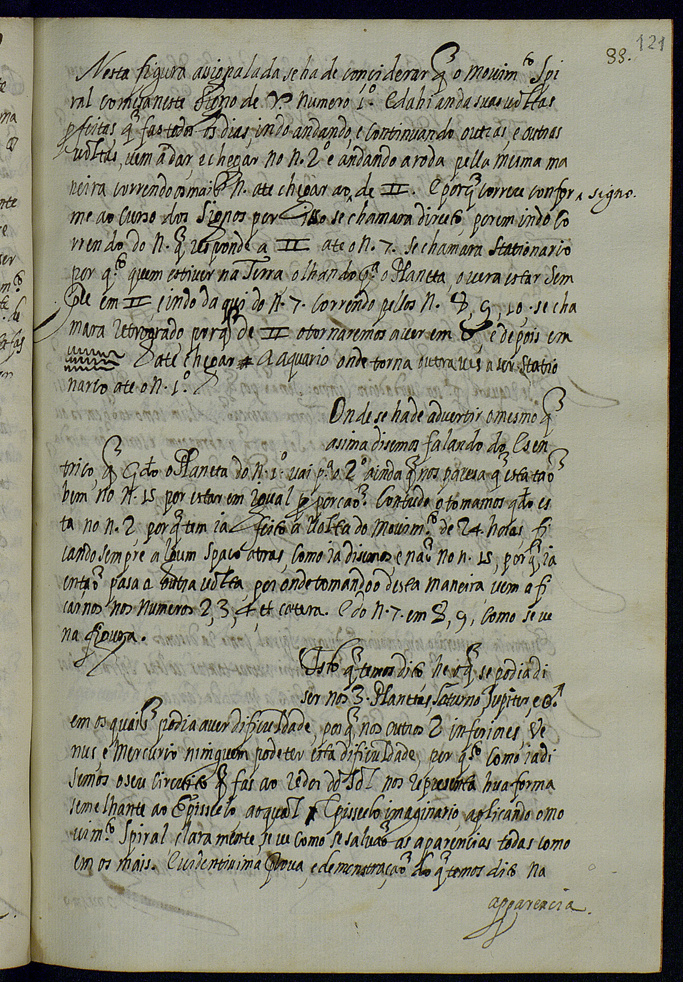 88. 121
Nesta figura assopalada se ha de considerar q̃ o movim.to Spi
ral comesa neste signo de ♈ numero 1.º e dahi anda suas voltas
pfeitas q̃ fas todos os dias, indo andando, e continuando outras, e outras
voltas, vem a dar e chegar no n. 2º e andando a roda pella mesma ma
neira correndo os mais N. ate chegar ao ‸ de ♊. e porq̃ correu confor ‸ signo.
me ao curso dos Signos por isso se chamara directo, porem indo co
rrendo do N. q̃ responde a ♊ ate o N. 7. se chamara Stationario
por q.to quem estiver na Terra olhando p.a o Planeta, o vera estar sem
pre em ♊ e indo daqui do N. 7. correndo pellos N. 8, 9, 10. se cha
mara retrogrado porq̃ de ♊ o tornaremos a ver em ♉ e depois em
ate chegar a Aquario onde torna outra ves a ser Statio
nario ate o N. 1.º
Onde se ha de advertir o mesmo q̃
asima disemos falando do Excen
trico, q̃ q̃do o Planeta do N. 1.º vai p.a o 2.º ainda q̃ nos paresa q̃ esta tão
bem no N. 15 por estar em igual proporcaõ. Contudo o tomamos q̃do es
ta no n. 2, porq̃ tem ja feito a volta do movim.to de 24 horas, fi
cando sempre algum spaco atras, como ja disemos e naõ no n. 15, porq̃ ja
entaõ pasa a outra volta, por onde tomando o desta maneira vem a fi
carnos nos numeros 2, 3, 4 et cætera. E do N. 7. em 8, 9, como se ve
na figura.
Isto q̃ temos dito he o q̃ se podia di
ser nos 3. Planetas Saturno Jupiter, e ♂
em os quais podia aver dificuldade, porq̃ nos outros 2 inferiores Ve
nus e Mercurio ninguem pode ter esta dificuldade, por q.to como ja di
semos o seu circuito q̃ fas ao redor do Sol nos representa hua forma
semelhante ao Episiclo ao qual Episiclo imaginario, aplicando o mo
vim.to Spiral claramente se ve como se salvaõ as aparencias todas como
em os mais. Evidentisima prova, e demonstraçaõ do q̃ temos dito na
apparencia.